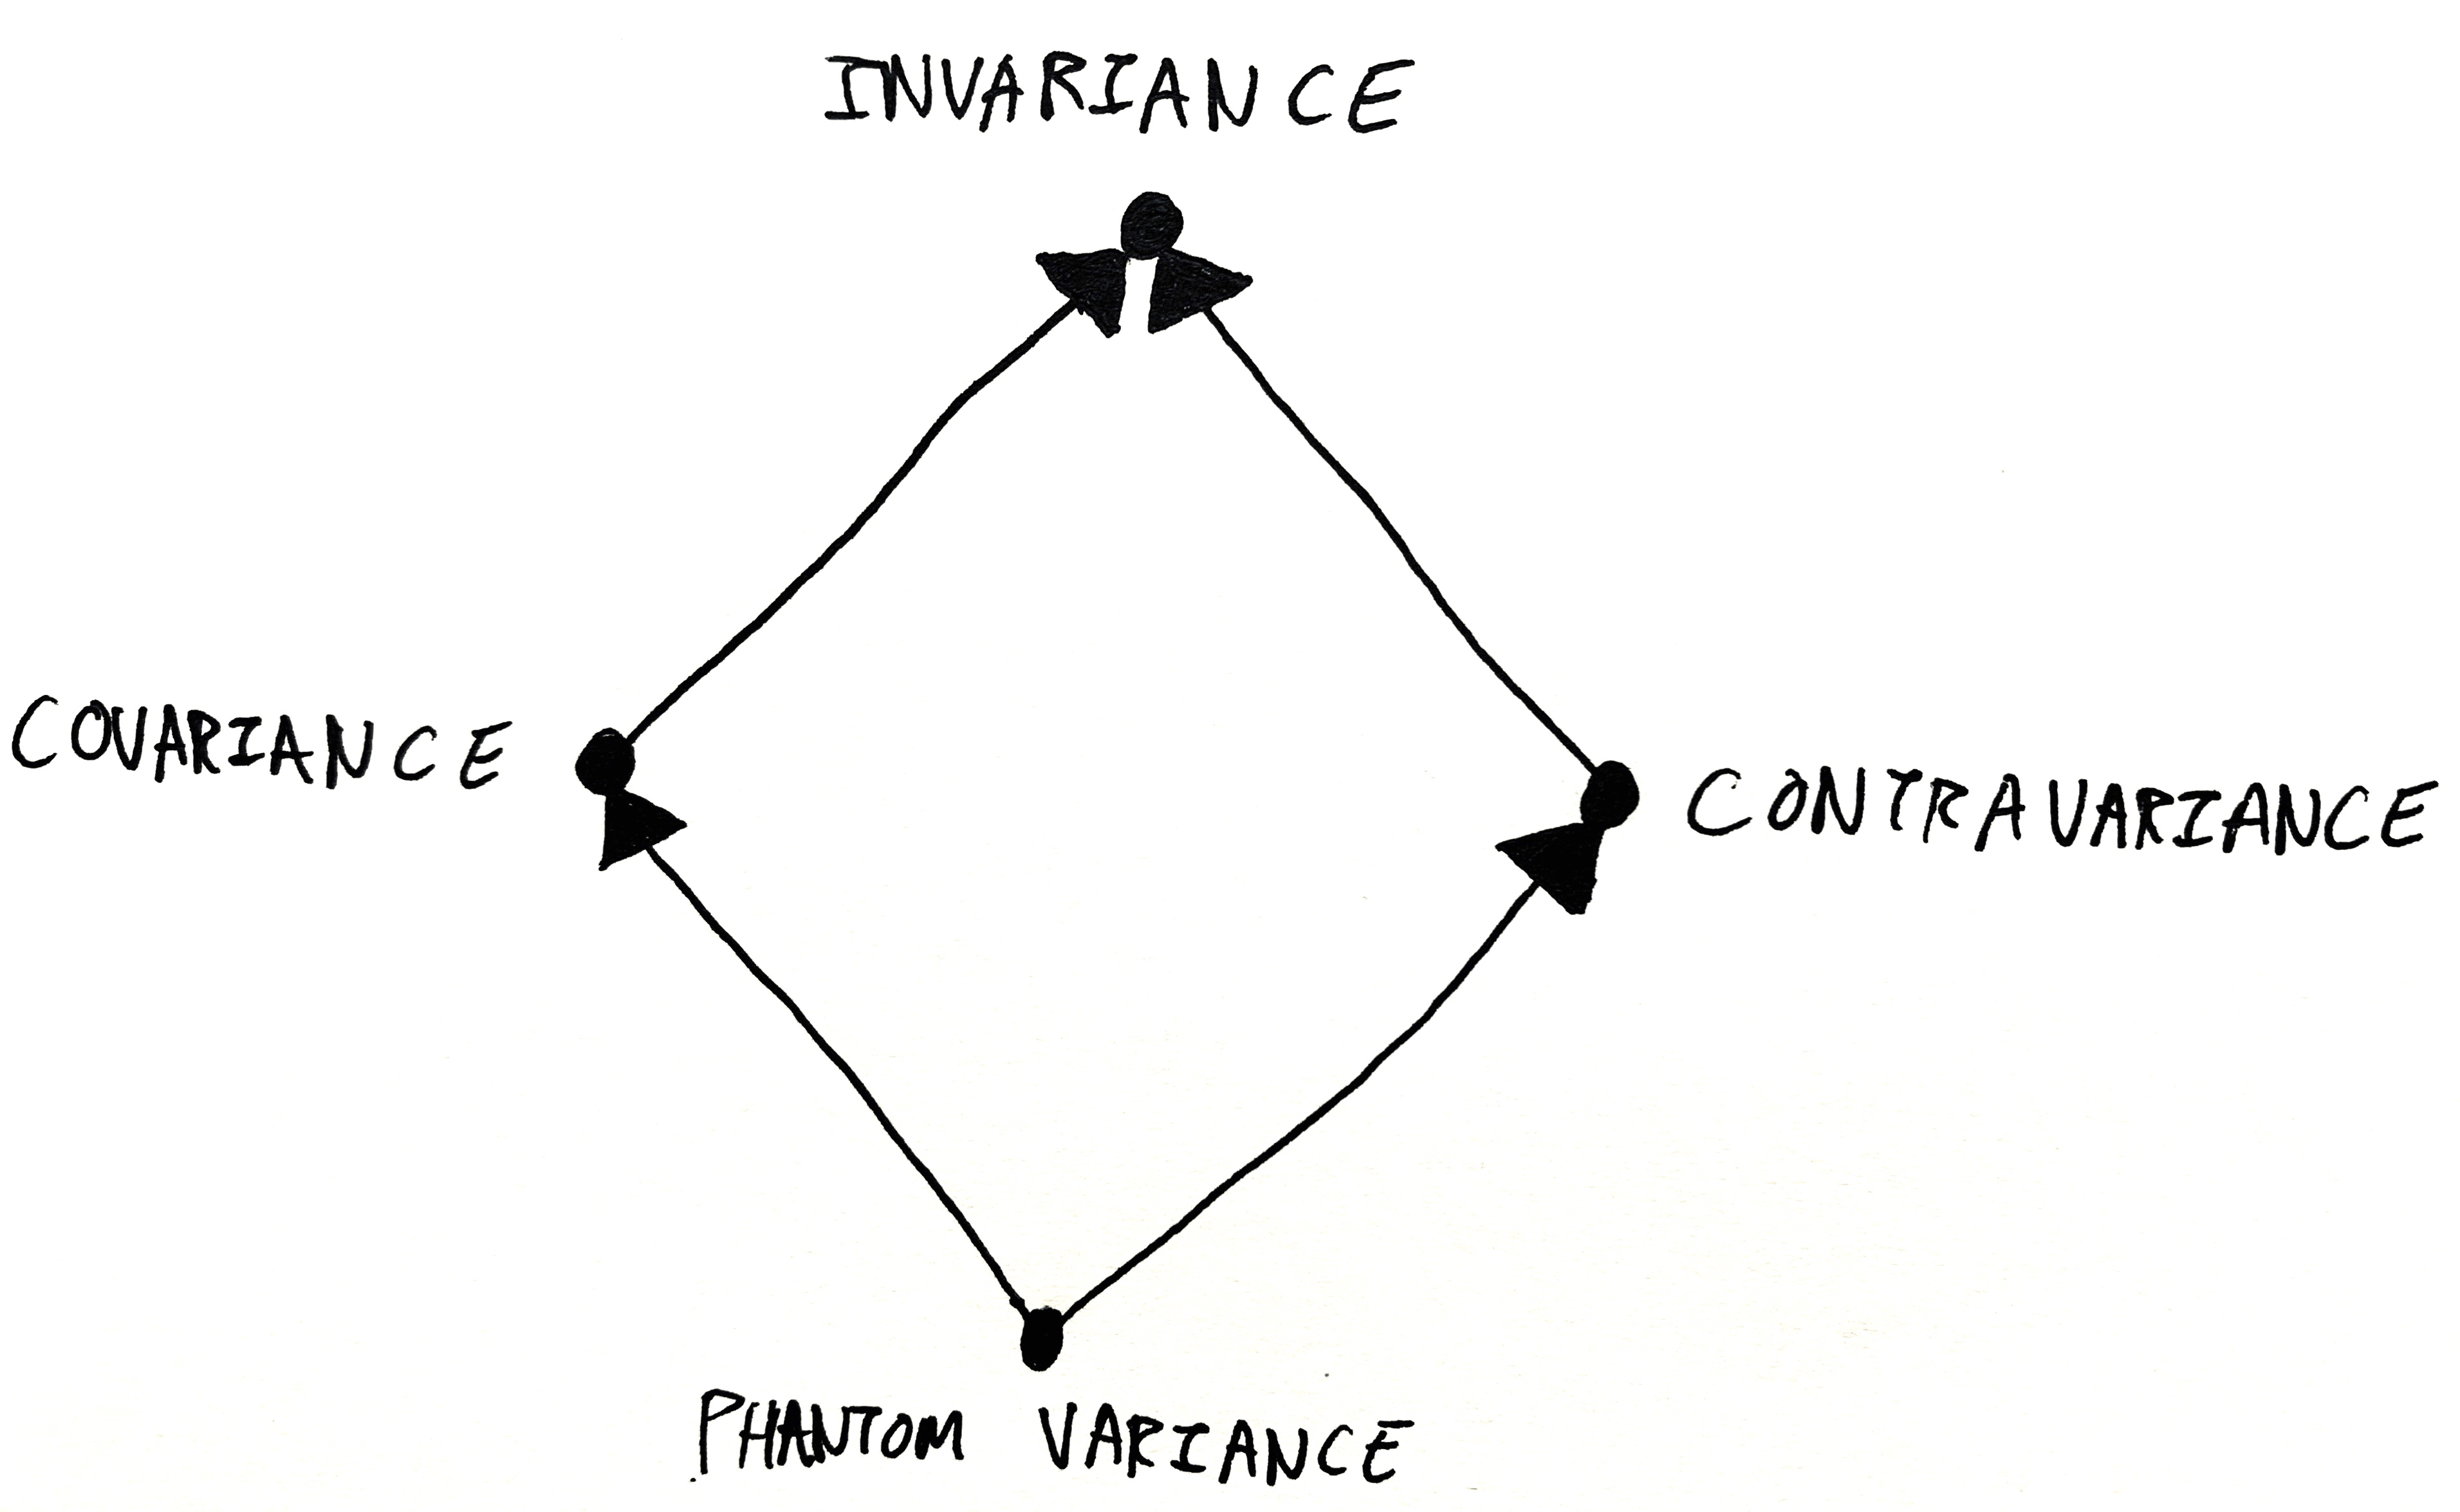 INVARIANCE
COVARIANCE
CONTRAVARIANCE
PHANTOM VARIANCE